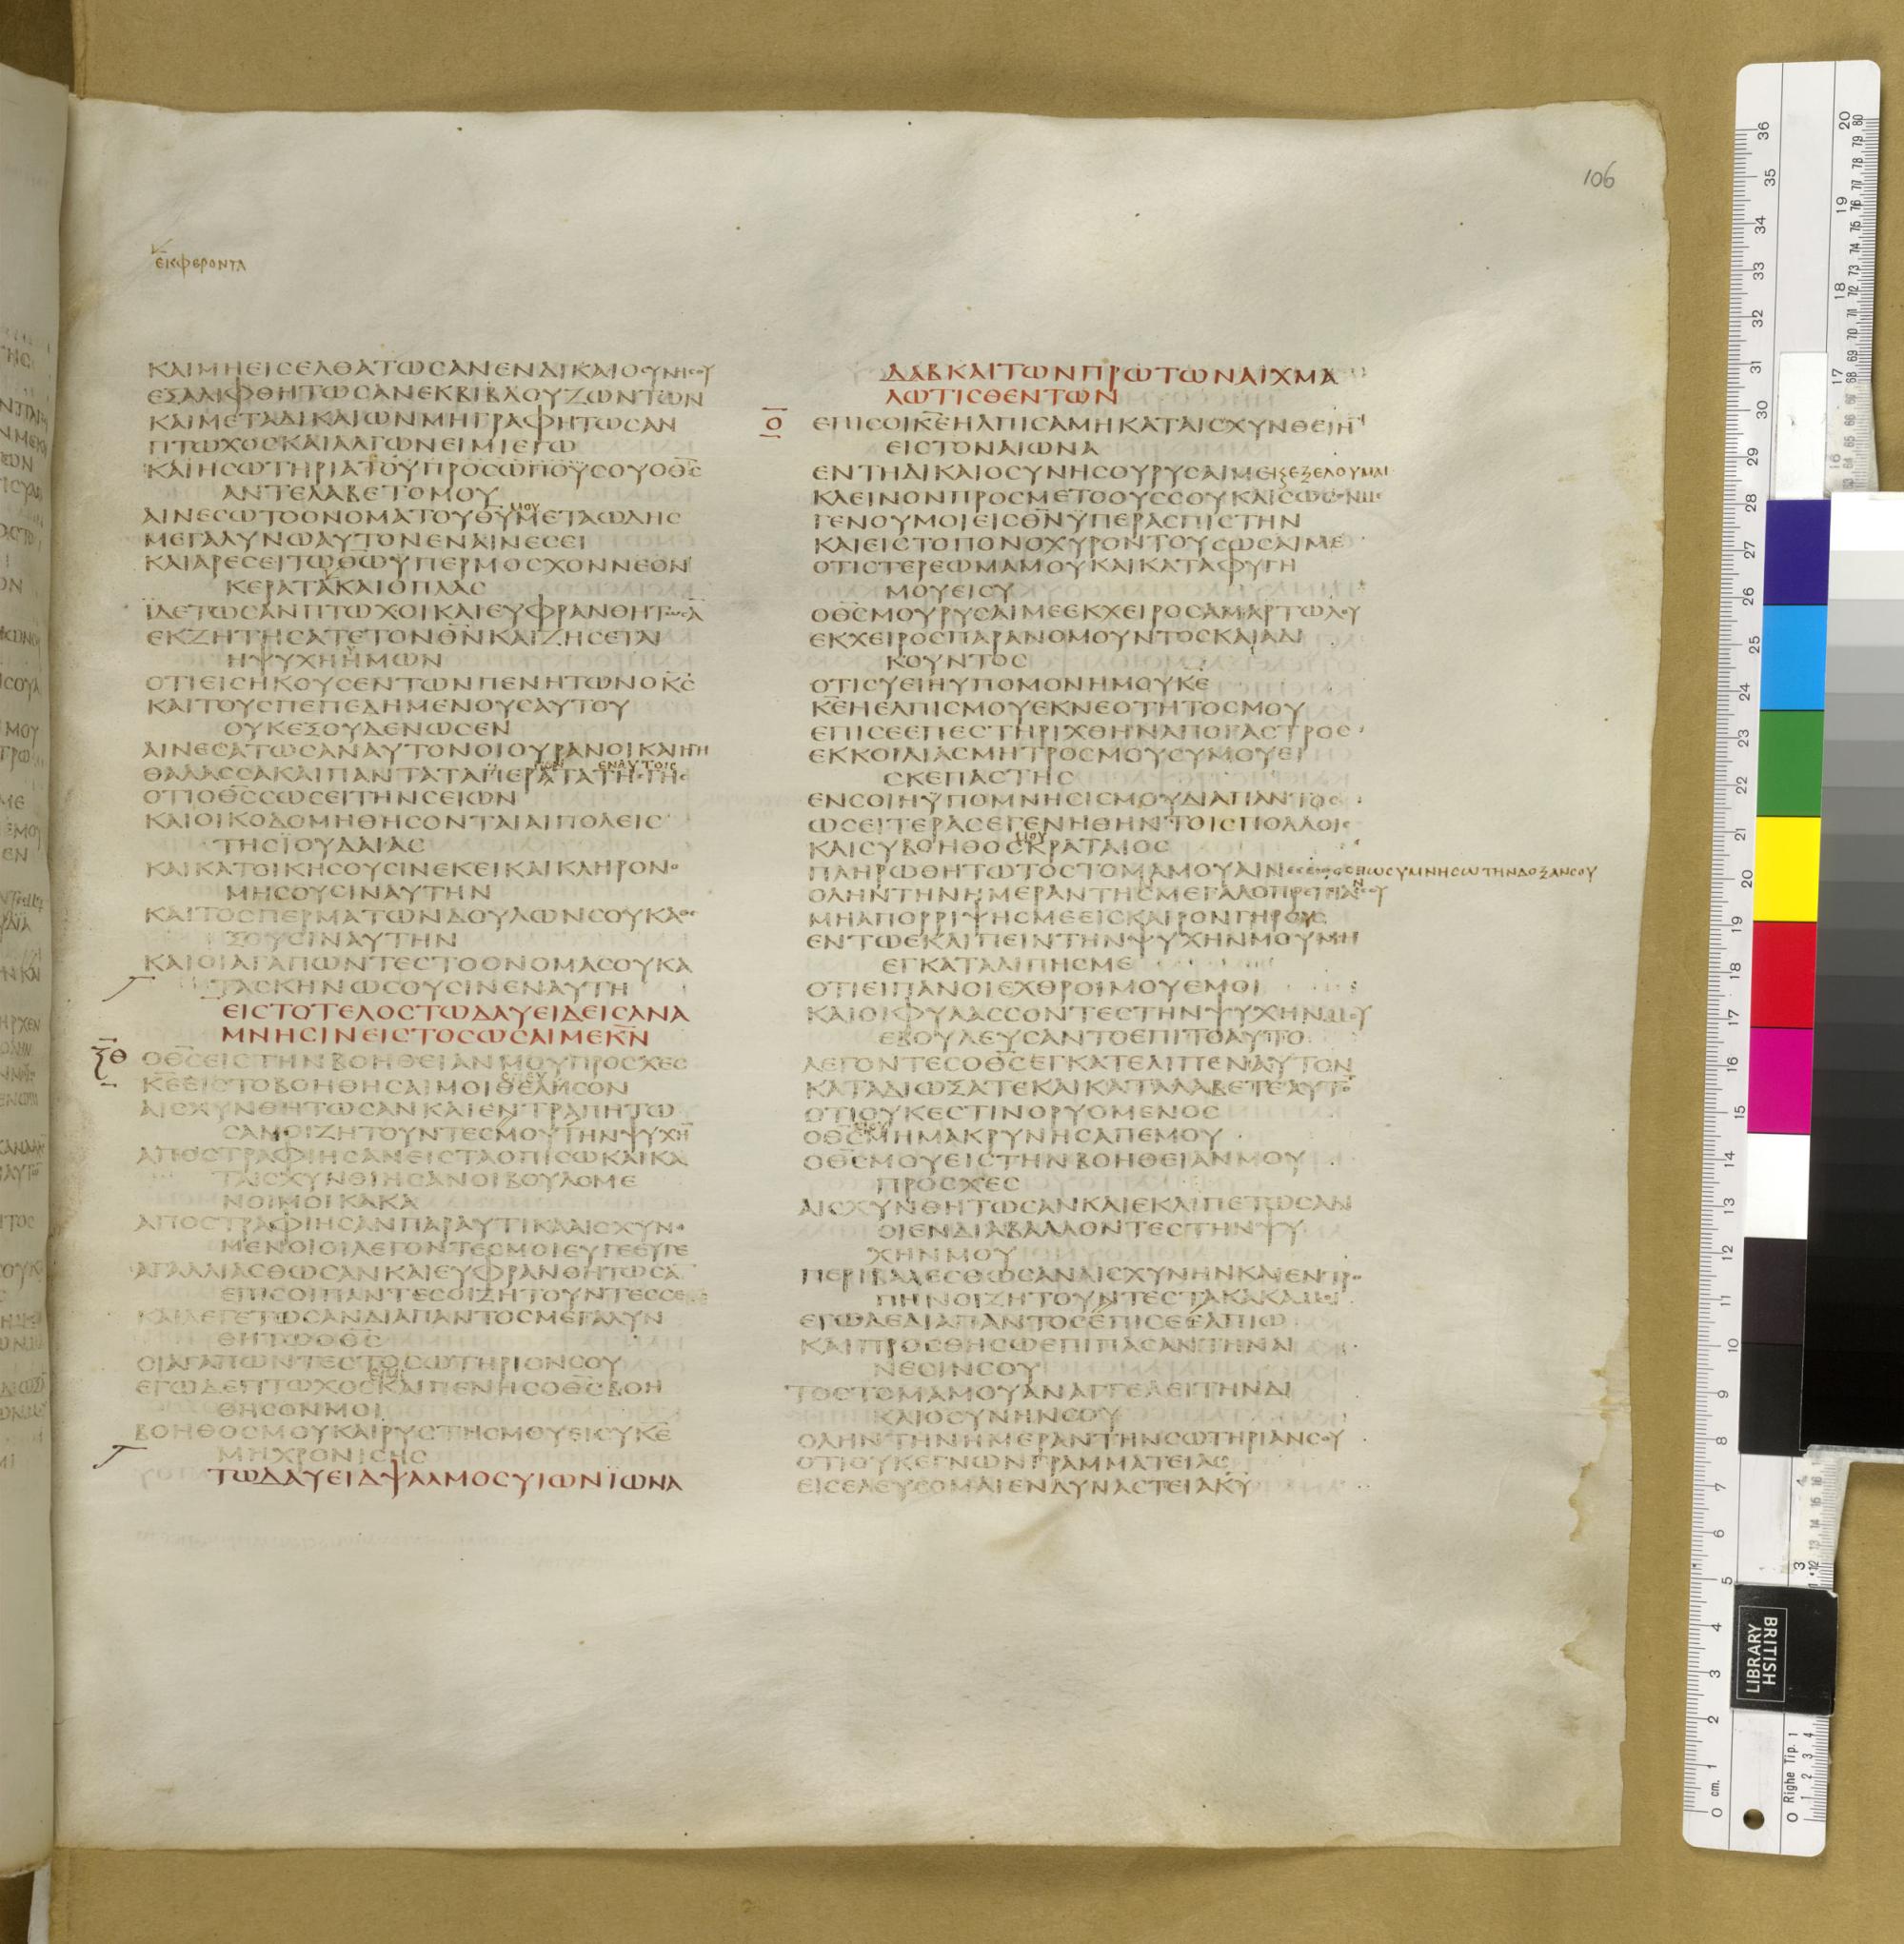 106
ΕΚΦΕΡΟΝΤΑ
ΚΑΙΜΗΕΙΣΕΛΘΑΤΩΣΑΝΕΝΔΙΚΑΙΟΣΥΝΗΣΟΥ
ΕΞΑΛΙΦΘΗΤΩΣΑΝΕΚΒΙΒΛΟΥΖΩΝΤΩΝ
ΚΑΙΜΕΤΑΔΙΚΑΙΩΝΜΗΓΡΑΦΗΤΩΣΑΝ
ΠΤΩΧΟΣΚΑΙΑΛΓΩΝΕΙΜΙΕΓΩ
ΚΑΙΗΣΩΤΗΡΙΑΤΟΥΠΡΟΣΩΠΟΥΣΟΥΟΘΣ
ΑΝΤΕΛΑΒΕΤΟΜΟΥ
ΑΙΝΕΣΩΤΟΟΝΟΜΑΤΟΥΘΥΜΟΥΜΕΤΑΩΔΗΣ
ΜΕΓΑΛΥΝΩΑΥΤΟΝΕΝΑΙΝΕΣΕΙ
ΚΑΙΑΡΕΣΕΙΤΩΘΩΥΠΕΡΜΟΣΧΟΝΝΕΟΝ
ΚΕΡΑΤΑΚΑΙΟΠΛΑΣ
ΪΔΕΤΩΣΑΝΠΤΩΧΟΙΚΑΙΕΥΦΡΑΝΘΗΤΩΣΑ
ΕΚΖΗΤΗΣΑΤΕΤΟΝΘΝΚΑΙΖΗΣΕΤΑΙ
ΗΨΥΧΗΗΜΩΝ
ΟΤΙΕΙΣΗΚΟΥΣΕΝΤΩΝΠΕΝΗΤΩΝΟΚΣ
ΚΑΙΤΟΥΣΠΕΠΕΔΗΜΕΝΟΥΣΑΥΤΟΥ
ΟΥΚΕΞΟΥΔΕΝΩΣΕΝ
ΑΙΝΕΣΑΤΩΣΑΝΑΥΤΟΝΟΙΟΥΡΑΝΟΙΚΑΙΗΓΗ
ΘΑΛΑΣΣΑΚΑΙΠΑΝΤΑΤΑΠΕΡΑΤΑΤΗΣΓΗΣ
ΕΝΑΥΤΟΙΣ
ΟΤΙΟΘΣΣΩΣΕΙΤΗΝΣΕΙΩΝ
ΚΑΙΟΙΚΟΔΟΜΗΘΗΣΟΝΤΑΙΑΙΠΟΛΕΙΣ
ΤΗΣΪΟΥΔΑΙΑΣ
ΚΑΙΚΑΤΟΙΚΗΣΟΥΣΙΝΕΚΕΙΚΑΙΚΛΗΡΟΝΟ
ΜΗΣΟΥΣΙΝΑΥΤΗΝ
ΚΑΙΤΟΣΠΕΡΜΑΤΩΝΔΟΥΛΩΝΣΟΥΚΑΘΕ
ΞΟΥΣΙΝΑΥΤΗΝ
ΚΑΙΟΙΑΓΑΠΩΝΤΕΣΤΟΟΝΟΜΑΣΟΥΚΑ
ΤΑΣΚΗΝΩΣΟΥΣΙΝΕΝΑΥΤΗ
ΕΙΣΤΟΤΕΛΟΣΤΩΔΑΥΕΙΔΕΙΣΑΝΑ
ΜΝΗΣΙΝΕΙΣΤΟΣΩΣΑΙΜΕΚΝ
ΞΘ
ΟΘΣΕΙΣΤΗΝΒΟΗΘΕΙΑΝΜΟΥΠΡΟΣΧΕΣ
ΚΕΕΙΣΤΟΒΟΗΘΗΣΑΙΜΟΙΘΕΛΗΣΟΝ
ΑΙΣΧΥΝΘΗΤΩΣΑΝΚΑΙΕΝΤΡΑΠΗΤΩ
ΣΑΝΟΙΖΗΤΟΥΝΤΕΣΜΟΥΤΗΝΨΥΧΗ
ΑΠΟΣΤΡΑΦΙΗΣΑΝΕΙΣΤΑΟΠΙΣΩΚΑΙΚΑ
ΤΑΙΣΧΥΝΘΙΗΣΑΝΟΙΒΟΥΛΟΜΕ
ΝΟΙΜΟΙΚΑΚΑ
ΑΠΟΣΤΡΑΦΙΗΣΑΝΠΑΡΑΥΤΙΚΑΑΙΣΧΥΝΟ
ΜΕΝΟΙΟΙΛΕΓΟΝΤΕΣΜΟΙΕΥΓΕΕΥΓΕ
ΑΓΑΛΛΙΑΣΘΩΣΑΝΚΑΙΕΥΦΡΑΝΘΗΤΩΣΑ
ΕΠΙΣΟΙΠΑΝΤΕΣΟΙΖΗΤΟΥΝΤΕΣΣΕ
ΚΑΙΛΕΓΕΤΩΣΑΝΔΙΑΠΑΝΤΟΣΜΕΓΑΛΥΝ
ΘΗΤΩΟΘΣ
ΟΙΑΓΑΠΩΝΤΕΣΤΟΣΩΤΗΡΙΟΝΣΟΥ
ΕΓΩΔΕΠΤΩΧΟΣΚΑΙΠΕΝΗΣΟΘΣΒΟΗ
ΘΗΣΟΝΜΟΙ
ΒΟΗΘΟΣΜΟΥΚΑΙΡΥΣΤΗΣΜΟΥΕΙΣΥΚΕ
ΜΗΧΡΟΝΙΣΗΣ
ΤΩΔΑΥΕΙΔΨΑΛΜΟΣΥΙΩΝΪΩΝΑ
ΔΑΒΚΑΙΤΩΝΠΡΩΤΩΝΑΙΧΜΑ
ΛΩΤΙΣΘΕΝΤΩΝ
Ο
ΕΠΙΣΟΙΚΕΗΛΠΙΣΑΜΗΚΑΤΑΙΣΧΥΝΘΕΙΗ
ΕΙΣΤΟΝΑΙΩΝΑ
ΕΝΤΗΔΙΚΑΙΟΣΥΝΗΣΟΥΡΥΣΑΙΜΕΚΕΞΕΛΟΥΜΑΙ
ΚΛΕΙΝΟΝΠΡΟΣΜΕΤΟΟΥΣΣΟΥΚΑΙΣΩΣΟΝΜΕ
ΓΕΝΟΥΜΟΙΕΙΣΘΝΫΠΕΡΑΣΠΙΣΤΗΝ
ΚΑΙΕΙΣΤΟΠΟΝΟΧΥΡΟΝΤΟΥΣΩΣΑΙΜΕ
ΟΤΙΣΤΕΡΕΩΜΑΜΟΥΚΑΙΚΑΤΑΦΥΓΗ
ΜΟΥΕΙΣΥ
ΟΘΣΜΟΥΡΥΣΑΙΜΕΕΚΧΕΙΡΟΣΑΜΑΡΤΩΛΟΥ
ΕΚΧΕΙΡΟΣΠΑΡΑΝΟΜΟΥΝΤΟΣΚΑΙΑΔΙ
ΚΟΥΝΤΟΣ
ΟΤΙΣΥΕΙΗΥΠΟΜΟΝΗΜΟΥΚΕ
ΚΕΗΕΛΠΙΣΜΟΥΕΚΝΕΟΤΗΤΟΣΜΟΥ
ΕΠΙΣΕΕΠΕΣΤΗΡΙΧΘΗΝΑΠΟΓΑΣΤΡΟΣ
ΕΚΚΟΙΛΙΑΣΜΗΤΡΟΣΜΟΥΣΥΜΟΥΕΙ
ΣΚΕΠΑΣΤΗΣ
ΕΝΣΟΙΗΫΠΟΜΝΗΣΙΣΜΟΥΔΙΑΠΑΝΤΟΣ
ΩΣΕΙΤΕΡΑΣΕΓΕΝΗΘΗΝΤΟΙΣΠΟΛΛΟΙΣ
ΚΑΙΣΥΒΟΗΘΟΣΜΟΥΚΡΑΤΑΙΟΣ
ΠΛΗΡΩΘΗΤΩΤΟΣΤΟΜΑΜΟΥΑΙΝΕΣΕΩΣΟΠΩΣΥΜΝΗΣΩΤΗΝΔΟΞΑΝΣΟΥ
ΟΛΗΝΤΗΝΗΜΕΡΑΝΤΗΣΜΕΓΑΛΟΠΡΕΠΙΑΣΣΟΥ
ΜΗΑΠΟΡΡΙΨΗΣΜΕΕΙΣΚΑΙΡΟΝΓΗΡΟΥΣ
ΕΝΤΩΕΚΛΙΠΕΙΝΤΗΝΨΥΧΗΝΜΟΥΜΗ
ΕΓΚΑΤΑΛΙΠΗΣΜΕ
ΟΤΙΕΙΠΑΝΟΙΕΧΘΡΟΙΜΟΥΕΜΟΙ
ΚΑΙΟΙΦΥΛΑΣΣΟΝΤΕΣΤΗΝΨΥΧΗΝΜΟΥ
ΕΒΟΥΛΕΥΣΑΝΤΟΕΠΙΤΟΑΥΤΟ
ΛΕΓΟΝΤΕΣΟΘΣΕΓΚΑΤΕΛΙΠΕΝΑΥΤΟΝ
ΚΑΤΑΔΙΩΞΑΤΕΚΑΙΚΑΤΑΛΑΒΕΤΕΑΥΤΟ
ΟΤΙΟΥΚΕΣΤΙΝΟΡΥΟΜΕΝΟΣ
ΟΘΣΜΗΜΑΚΡΥΝΗΣΑΠΕΜΟΥ
ΟΘΣΜΟΥΕΙΣΤΗΝΒΟΗΘΕΙΑΝΜΟΥ
ΠΡΟΣΧΕΣ
ΑΙΣΧΥΝΘΗΤΩΣΑΝΚΑΙΕΚΛΙΠΕΤΩΣΑΝ
ΟΙΕΝΔΙΑΒΑΛΛΟΝΤΕΣΤΗΝΨΥ
ΧΗΝΜΟΥ
ΠΕΡΙΒΑΛΕΣΘΩΣΑΝΑΙΣΧΥΝΗΝΚΑΙΕΝΤΡΟ
ΠΗΝΟΙΖΗΤΟΥΝΤΕΣΤΑΚΑΚΑΜΟΙ
ΕΓΩΔΕΔΙΑΠΑΝΤΟΣΕΠΙΣΕΕΛΠΙΩ
ΚΑΙΠΡΟΣΘΗΣΩΕΠΙΠΑΣΑΝΤΗΝΑΙ
ΝΕΣΙΝΣΟΥ
ΤΟΣΤΟΜΑΜΟΥΑΝΑΓΓΕΛΕΙΤΗΝΔΙ
ΚΑΙΟΣΥΝΗΝΣΟΥ
ΟΛΗΝΤΗΝΗΜΕΡΑΝΤΗΝΣΩΤΗΡΙΑΝΣΟΥ
ΟΤΙΟΥΚΕΓΝΩΝΓΡΑΜΜΑΤΕΙΑΣ
ΕΙΣΕΛΕΥΣΟΜΑΙΕΝΔΥΝΑΣΤΕΙΑΚΥ
BRITISH
LIBRARY